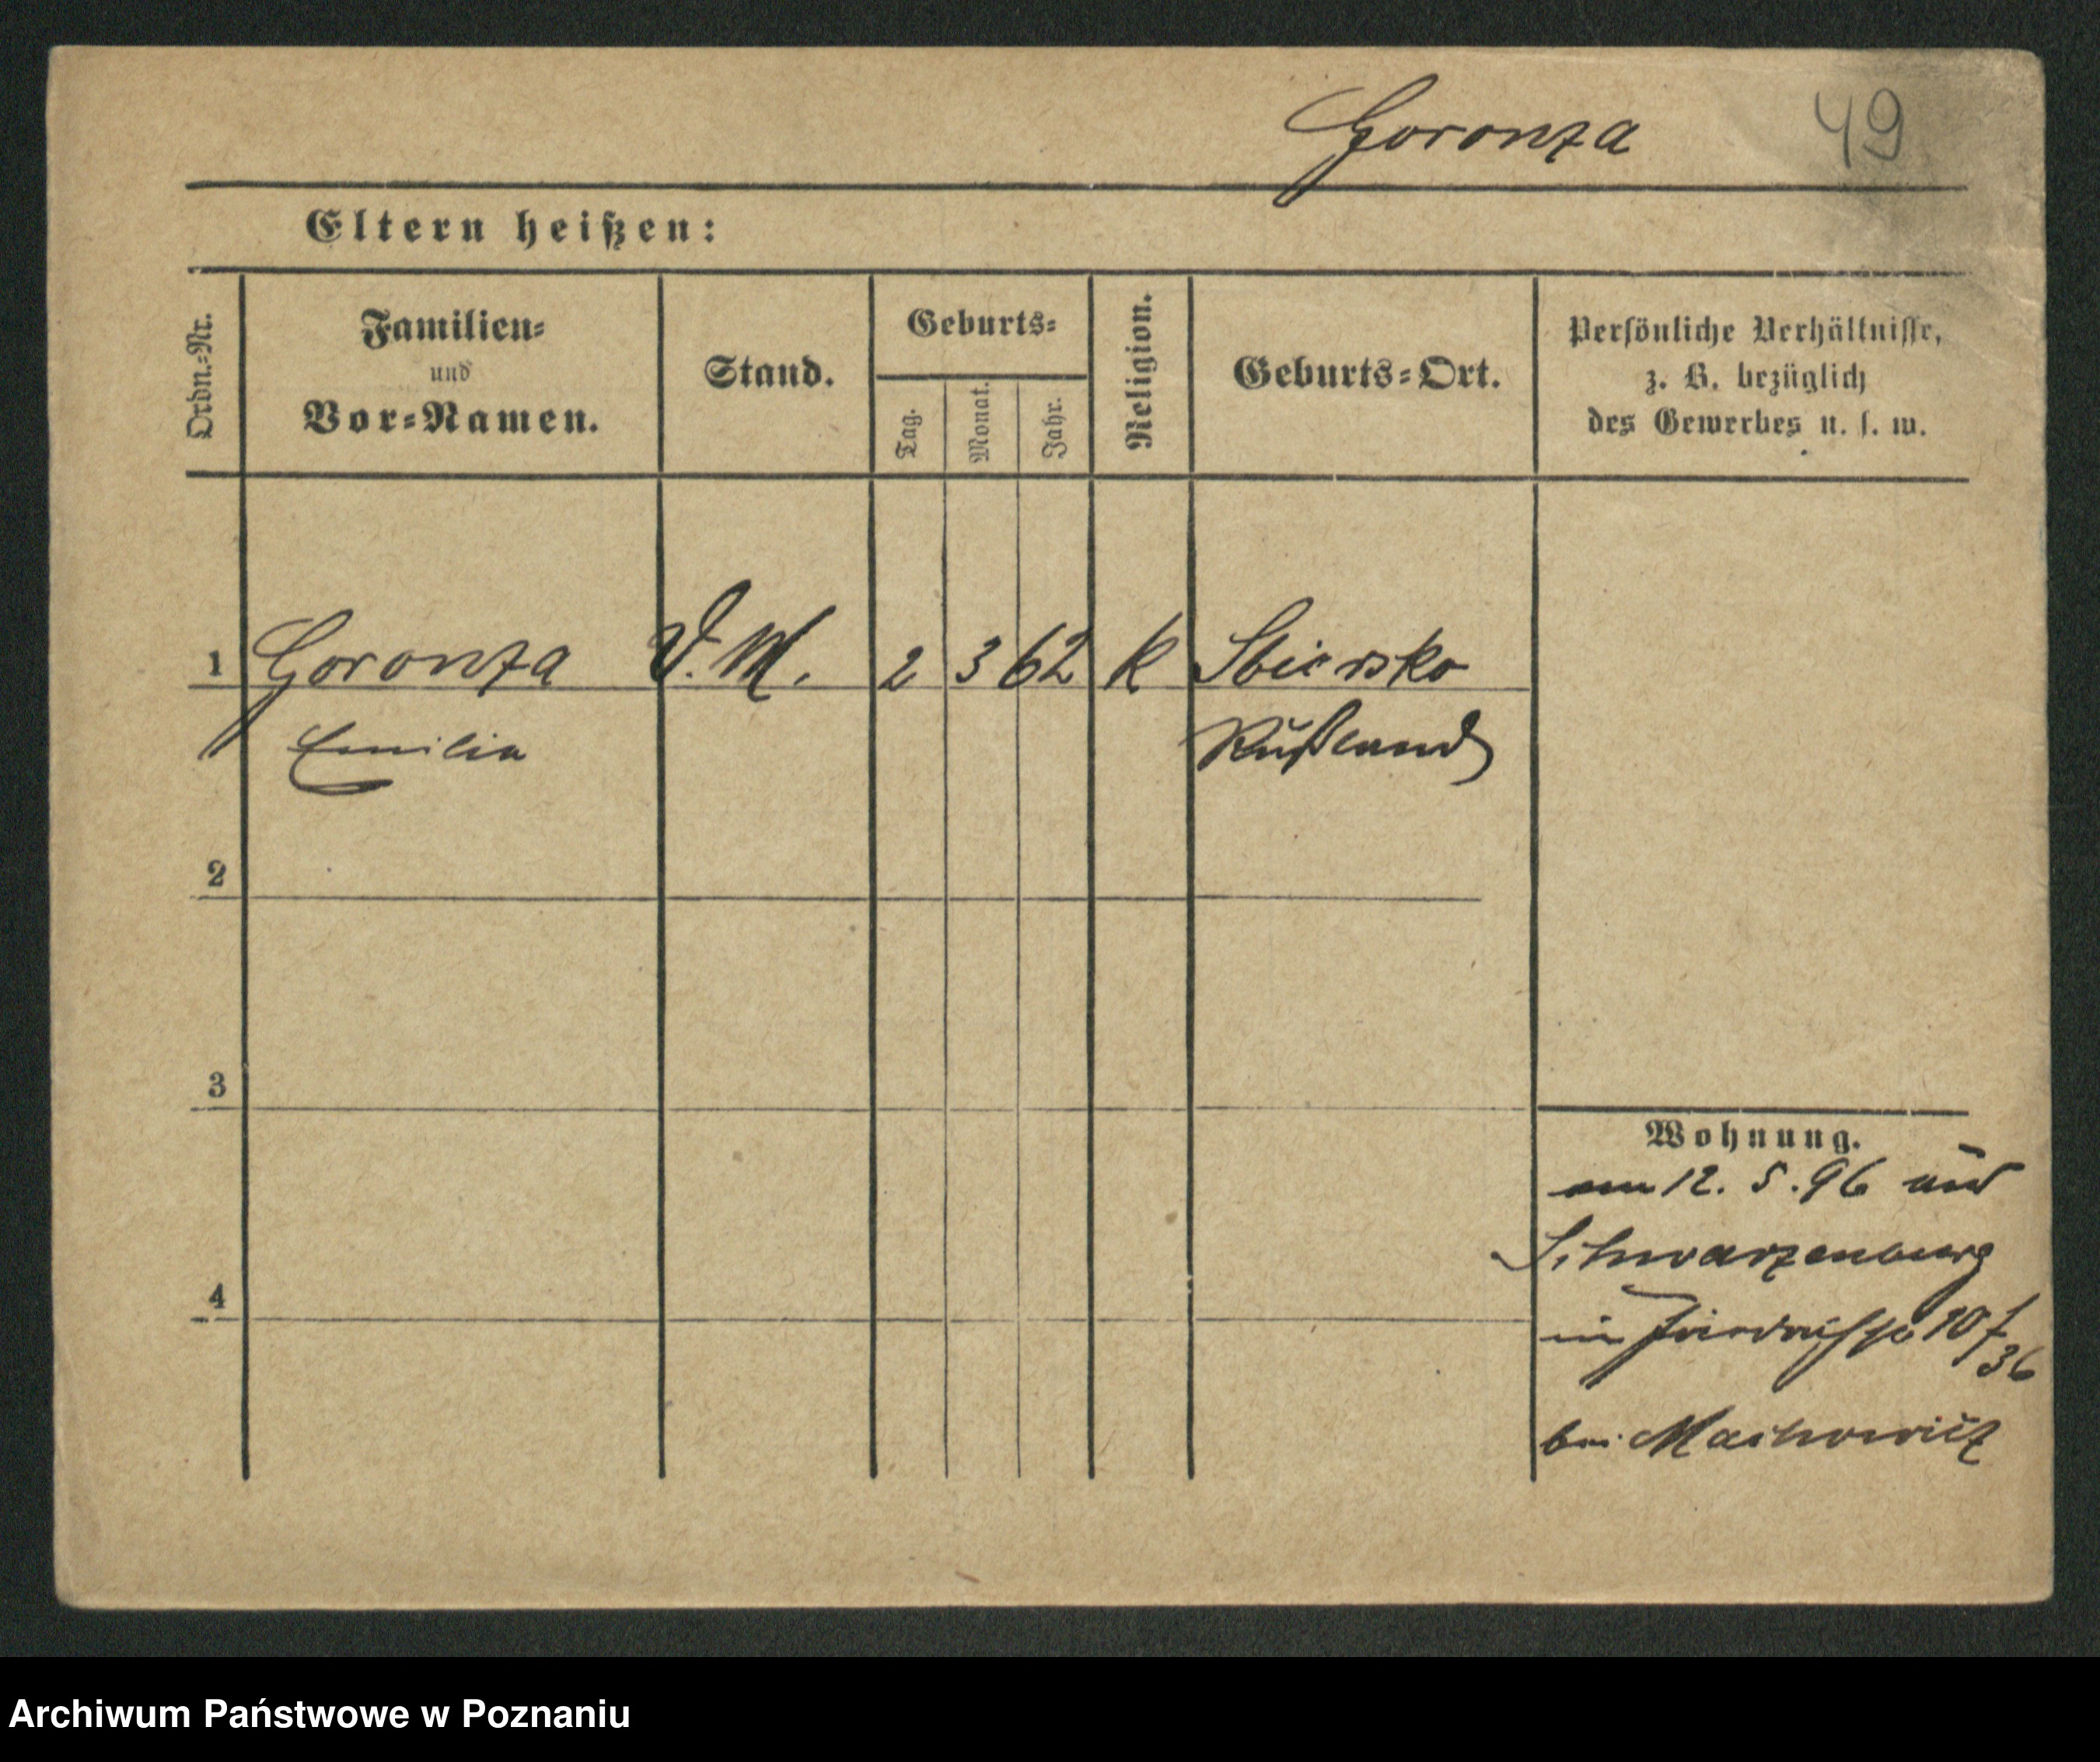 Goronza 49
Eltern heißen:
Ordn.-Nr.
Familien-
und
Vor-Namen.
Stand.
Geburts-
Tag.
Monat.
Jahr.
Religion.
Geburts-Ort.
Persönliche Verhältnisse,
z. B. bezüglich
des Gewerbes u. s. w.
1 Goronza 2 3 62 K
Emilia Rußland
2
3
4
Wohnung.
am 12. 5. 96 aus
Schwarzenburg
in
36
bei Machowicz
Archiwum Państwowe w Poznaniu